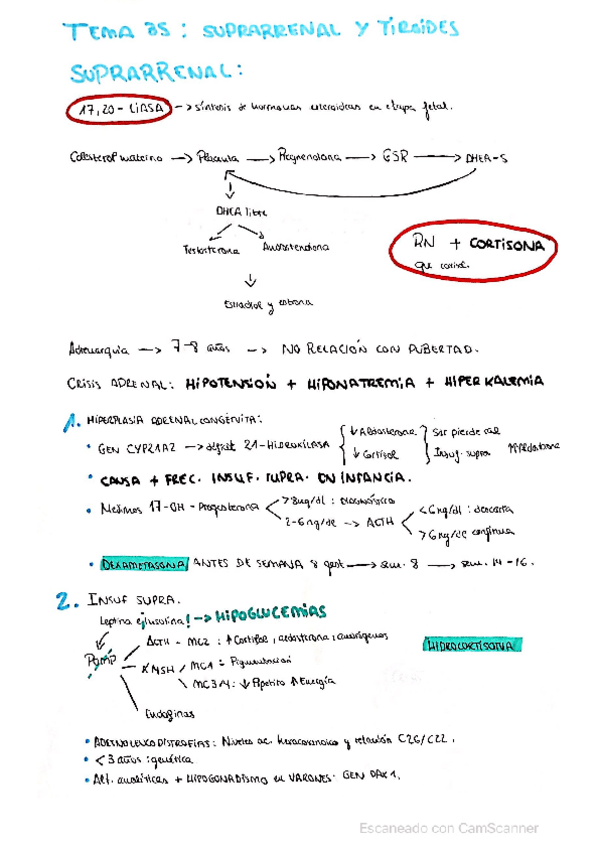 TEMA 35: SUPRARRENAL Y TIROIDES
SUPRARRENAL:
17,20-LIASA -> síntesis de hormonas esteroideas en etapa fetal.
Colesterol materno -> Placenta -> Pregnenolona -> GSR -> DHEA-S
DHEA libre
Testosterona Androstendiona
RN + CORTISONA
que cortisol.
Estradiol y estrona
Adrenarquia -> 7-8 años -> NO RELACIÓN CON PUBERTAD.
CRISIS ADRENAL: HIPOTENSIÓN + HIPONATREMIA + HIPERKALEMIA
1. HIPERPLASIA ADRENAL CONGÉNITA:
• GEN CYP21A2 -> déficit 21-HIDROXILASA ↓ Aldosterona Sar pierde sal
↓ Cortisol Insuf. supra
• CAUSA + FREC. INSUF. SUPRA. EN INFANCIA.
• Medimos 17-OH-Progesterona >8ug/dl: Diagnóstico
2-6ng/dl -> ACTH <6ng/dl: descarta
>6ng/dl continua
• DEXAMETASONA ANTES DE SEMANA 8 gest -> sem. 8 -> sem. 14-16.
2. INSUF SUPRA.
Leptina e insulina! -> HIPOGLUCEMIAS
POMP
ACTH - MC2: ↑ Cortisol, aldosterona, andrógenos
HIDROCORTISONA
αMSH MC1: Pigmentación
MC3/4: ↓ Apetito ↑ Energía
Endorfinas
• ADRENOLEUCODISTROFIAS: Niveles ac. hexacosanoico y relación C26/C22.
• <3 años: genética.
• Alt. analíticas + HIPOGONADISMO en VARONES: GEN DAX1.
Escaneado con CamScanner